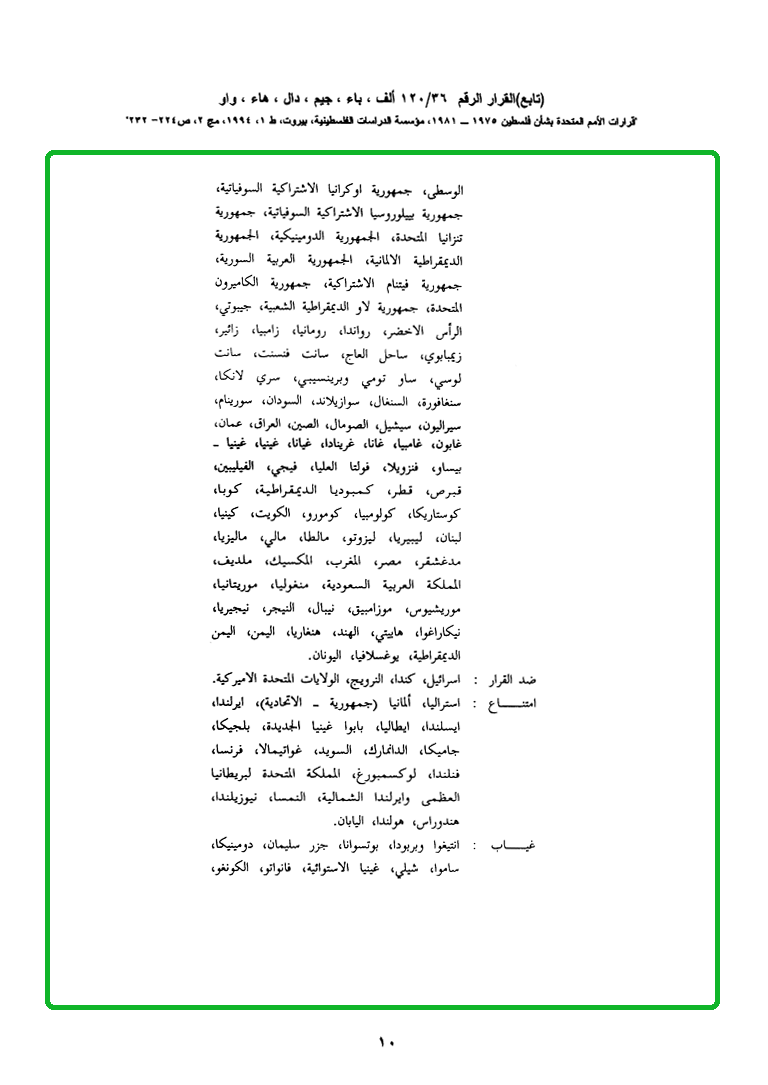 (تابع)القرار الرقم ١٢٠/٣٦ ألف ، باء ، جيم ، دال ، هاء ، واو
"قرارات الأمم المتحدة بشأن فلسطين ١٩٧٥ ــ ١٩٨١، مؤسسة الدراسات الفلسطينية، بيروت، ط ١، ١٩٩٤، مج ٢، ص٢٢٤- ٢٣٢"
الوسطى، جمهورية اوكرانيا الاشتراكية السوفياتية،
جمهورية بييلوروسيا الاشتراكية السوفياتية، جمهورية
تنزانيا المتحدة، الجمهورية الدومينيكية، الجمهورية
الديمقراطية الالمانية، الجمهورية العربية السورية،
جمهورية فيتنام الاشتراكية، جمهورية الكاميرون
المتحدة، جمهورية لاو الديمقراطية الشعبية، جيبوتي،
الرأس الاخضر، رواندا، رومانيا، زامبيا، زائير،
زيمبابوي، ساحل العاج، سانت فنسنت، سانت
لوسي، ساو تومي وبرينسيبي، سري لانكا،
سنغافورة، السنغال، سوازيلاند، السودان، سورينام،
سيراليون، سيشيل، الصومال، الصين، العراق، عمان،
غابون، غامبيا، غانا، غرينادا، غيانا، غينيا، غينيا ـ
بيساو، فنزويلا، فولتا العليا، فيجي، الفيليبين،
قبرص، قطر، كمبوديا الديمقراطية، كوبا،
كوستاريكا، كولومبيا، كومورو، الكويت، كينيا،
لبنان، ليبيريا، ليزوتو، مالطا، مالي، ماليزيا،
مدغشقر، مصر، المغرب، المكسيك، ملديف،
المملكة العربية السعودية، منغوليا، موريتانيا،
موريشيوس، موزامبيق، نيبال، النيجر، نيجيريا،
نيكاراغوا، هاييتي، الهند، هنغاريا، اليمن، اليمن
الديمقراطية، يوغسلافيا، اليونان.
ضد القرار : اسرائيل، كندا، النرويج، الولايات المتحدة الاميركية.
امتنـــــاع : استراليا، ألمانيا (جمهورية ــ الاتحادية)، ايرلندا،
ايسلندا، ايطاليا، بابوا غينيا الجديدة، بلجيكا،
جاميكا، الدانمارك، السويد، غواتيمالا، فرنسا،
فنلندا، لوكسمبورغ، المملكة المتحدة لبريطانيا
العظمى وايرلندا الشمالية، النمسا، نيوزيلندا،
هندوراس، هولندا، اليابان.
غيـــــاب : انتيغوا وبربودا، بوتسوانا، جزر سليمان، دومينيكا،
ساموا، شيلي، غينيا الاستوائية، فانواتو، الكونغو،
١٠